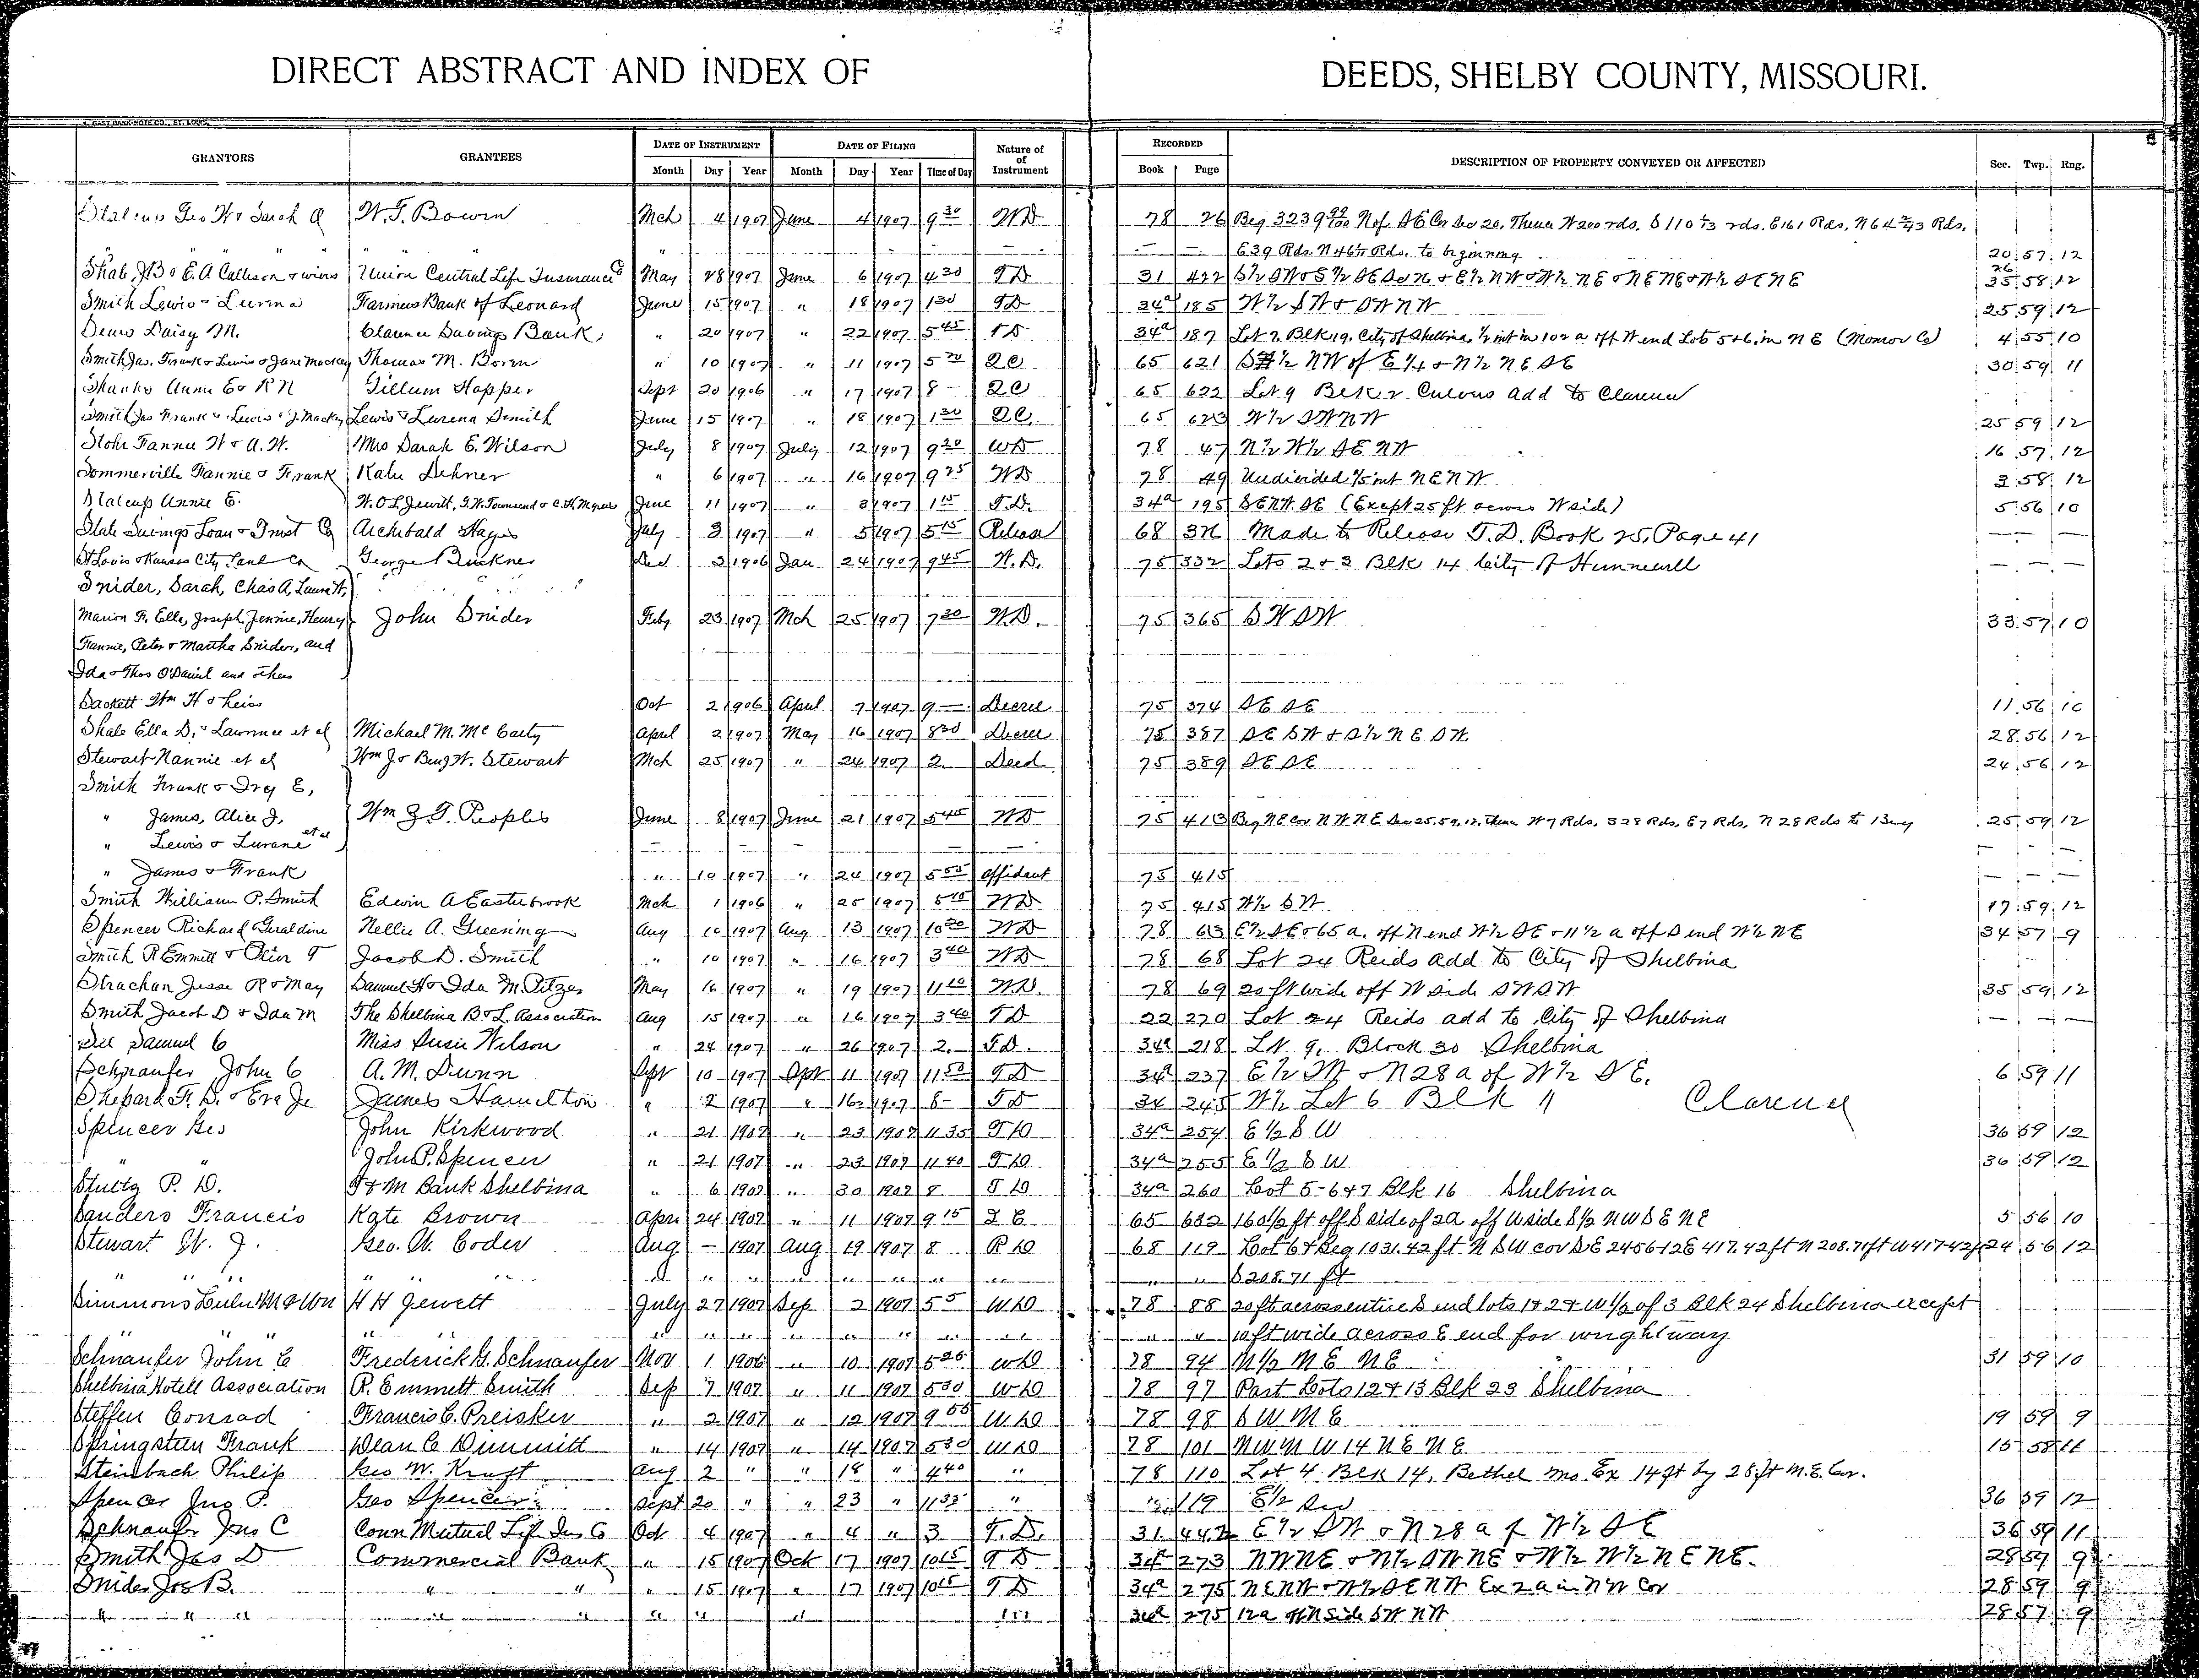 DIRECT ABSTRACT AND INDEX OF DEEDS, SHELBY COUNTY, MISSOURI.
GRANTORS GRANTEES DATE OF INSTRUMENT DATE OF FILING Nature of Instrument RECORDED DESCRIPTION OF PROPERTY CONVEYED OR AFFECTED Sec. Twp. Rng.
Month Day Year Month Day Year Time of Day Book Page
Stalcup Geo W & Sarah A W. T. Bowen Mch 4 1907 June 4 1907 9 30 WD 78 26 Beg 3239 N of SE Cor Sec 20, Thence W 200 rds. S 110 1/3 rds. E 161 Rds, N 64 Rds,
" " " " " — — E 39 Rds. N 46 Rds. to beginning 20 57 12
Shale, J B & E. A Callison & wives Union Central Life Insurance Co May 28 1907 June 6 1907 4 30 TD 31 422 S½ SW & S½ SE Sec 26 & E½ NW & W½ NE & NE NE & W½ SE NE 26 35 58 12
Smith Lewis & Lurena Farmers Bank of Leonard June 15 1907 " 18 1907 1 30 TD 34a 185 W½ SW & SW NW 25 59 12
Daisy M. Clarence Savings Bank " 20 1907 " 22 1907 5 45 TD 34a 187 Lot 7. Blk 19. City of Shelbina, ½ int in 102 a off W end Lots 5 & 6. in NE (Monroe Co) 4 55 10
Smith Jas. Frank & Lewis & Jane Mackey Thomas M. Boren " 10 1907 " 11 1907 5 20 QC 65 621 S½ NW of E ¼ & N½ NE SE 30 59 11
Shanks Anna E & R N Gillum Hopper Sept 20 1906 " 17 1907 8 — QC 65 622 Lot 9 Blk 2 Culvers add to Clarence
Smith Jas Frank & Lewis & J. Mackey Lewis & Lurena Smith June 15 1907 " 18 1907 1 30 QC. 65 623 W½ SW NW 25 59 12
Stohr Fannie W & A. W. Mrs Sarah E. Wilson July 8 1907 July 12 1907 9 20 WD 78 47 N½ W½ SE NW 16 57 12
Sommerville Fannie & Frank Katie Dehner " 6 1907 " 16 1907 9 25 WD 78 49 Undivided 1/5 int NE NW 3 58 12
Stalcup Annie E. W. O L Jewett, J. W. Townsend & C. H. Myers June 11 1907 " 3 1907 1 15 T.D. 34a 195 SE NW. SE (Except 25 ft across W side) 5 56 10
State Savings Loan & Trust Co Archibald Hayes July 3 1907 " 5 1907 5 15 Release 68 Made to Release T. D. Book 25, Page 41 — — —
St Louis & Kansas City Land Co George Buckner Dec 3 1906 Jan 24 1907 9 45 W. D. 75 332 Lots 2 & 3 Blk 14 City of Hunnewell — — —
Snider, Sarah, Chas A, Laura W,
Marion F. Ella, Joseph Jennie, Henry John Snider Feby 23 1907 Mch 25 1907 7 30 W. D. 75 365 SW SW 33 57 10
Fannie, Peter & Martha Snider, and
Ida & Thos O'Daniel and others
Sackett Wm H & heirs Oct 2 1906 April 7 1907 9 — Decree 75 374 SE SE 11 56 10
Shale Ella D. & Lawrence et al Michael M. McCarty April 2 1907 May 16 1907 8 30 Decree 75 387 SE SW & S½ NE SW. 28 56 12
Stewart Nannie et al Wm J & Benj W. Stewart Mch 25 1907 " 24 1907 2 Deed 75 389 SE SE 24 56 12
Smith Frank & Ivy E,
" James, Alice J. Wm & G. T. Peoples June 8 1907 June 21 1907 5 45 WD 75 413 Beg NE cor. NW NE Sec 25, 59, 12, Thence W 7 Rds, S 28 Rds, E 7 Rds, N 28 Rds to Beg 25 59 12
" Lewis & Lurane et al — — — — — —
" James & Frank " 10 1907 " 24 1907 5 50 Affidavit 75 415 — — —
Smith William P. Smith Edwin A Easterbrook Mch 1 1906 " 25 1907 8 10 WD 75 415 W½ SW 17 59 12
Spencer Richard Geraldine Nellie A. Greening Aug 10 1907 Aug 13 1907 10 20 WD 78 63 E½ SE & 65 a. off N end W½ SE & 11½ a off S end W½ NE 34 57 9
Smith R Emmett & Oliver T Jacob D. Smith " 10 1907 " 16 1907 3 40 WD 78 68 Lot 24 Reids add to City of Shelbina
Strachan Jesse R & May Samuel H & Ida M. Pitzer May 16 1907 " 19 1907 11 10 W.D. 78 69 20 ft wide off W side SW SW 35 59 12
Smith Jacob D & Ida M The Shelbina B & L. Association Aug 15 1907 " 16 1907 3 40 TD 22 270 Lot 24 Reids add to City of Shelbina — — —
Samuel C Miss Susie Wilson " 24 1907 " 26 1907 2. T.D. 34a 218 Lot 9, Block 30 Shelbina
Schnaufer John C A. M. Dunn Sept 10 1907 Sept 11 1907 11 50 TD 34a 237 E½ SW & N 28 a of W½ SE. 6 59 11
Shepard F. D. & Eva Je James Hamelton " 2 1907 " 16 1907 8 — TD 34 245 W½ Lot 6 Blk 11 Clarence
Spencer Geo John Kirkwood " 21 1907 " 23 1907 11 35 TD 34a 254 E½ SW 36 59 12
" " John P. Spencer " 21 1907 " 23 1907 11 40 TD 34a 255 E½ SW 36 59 12
Stultz P. D. F & M Bank Shelbina " 6 1907 " 30 1907 8 TD 34a 260 Lot 5-6 & 7 Blk 16 Shelbina
Sanders Francis Kate Brown Apri 24 1907 " 11 1907 9 15 Q C 65 632 160½ ft off S side of 2a off W side S½ NW SE NE 5 56 10
Stewart W. J. Geo. W. Coder Aug — 1907 Aug 19 1907 8 R D 68 119 Lot 6 & Beg 1031.42 ft N SW cor SE 24 56 12 E 417.42 ft N 208.71 ft W 417.42 ft 24 56 12
" " " " " " " " " " " " " " " S 208.71 ft
Simmons Lulu M & Wm H H Jewett July 27 1907 Sep 2 1907 5 5 WD 78 88 20 ft across entire S end lots 1 & 2 & W½ of 3 Blk 24 Shelbina except
" " " " " " " " " " " " " " 10 ft wide across E end for wrightway
Schnaufer John C Frederick G. Schnaufer Nov 1 1906 " 10 1907 5 20 WD 78 94 N½ NE NE 31 59 10
Shelbina Hotell Association R. Emmett Smith Sep 7 1907 " 11 1907 5 30 WD 78 97 Part Lots 12 & 13 Blk 23 Shelbina
Steffen Conrad Francis C. Preisker " 2 1907 " 12 1907 9 50 WD 78 98 SW NE 19 59 9
Springsteen Frank Dean C Dimmitt " 14 1907 " 14 1907 5 30 WD 78 101 NW NW 14 NE NE 15 58 11
Steinbach Philip Geo W. Kraft Aug 2 " " 18 " 4 40 " 78 110 Lot 4 Blk 14, Bethel Mo. Ex 14 ft by 28 ft N.E. Cor.
Spencer Jno P. Geo Spencer Sept 20 " " 23 " 11 35 " " 119 E½ 36 59 12
Schnaufer Jno C Conn Mutual Life Ins Co Oct 4 1907 " 4 " 3 T. D. 31 442 E½ SW & N 28 a of W½ SE 36 59 11
Smith Jas D Commercial Bank " 15 1907 Oct 17 1907 10 15 TD 34a 273 NW NE & N½ SW NE & W½ W½ NE NE. 28 59 9
Snider Jos B. " " " 15 1907 " 17 1907 10 15 TD 34a 275 NE NW & W½ SE NW Ex 2 a in NW Cor 28 59 9
" " " " " " " " " 34a 275 12 a off N side SW NW 28 57 9